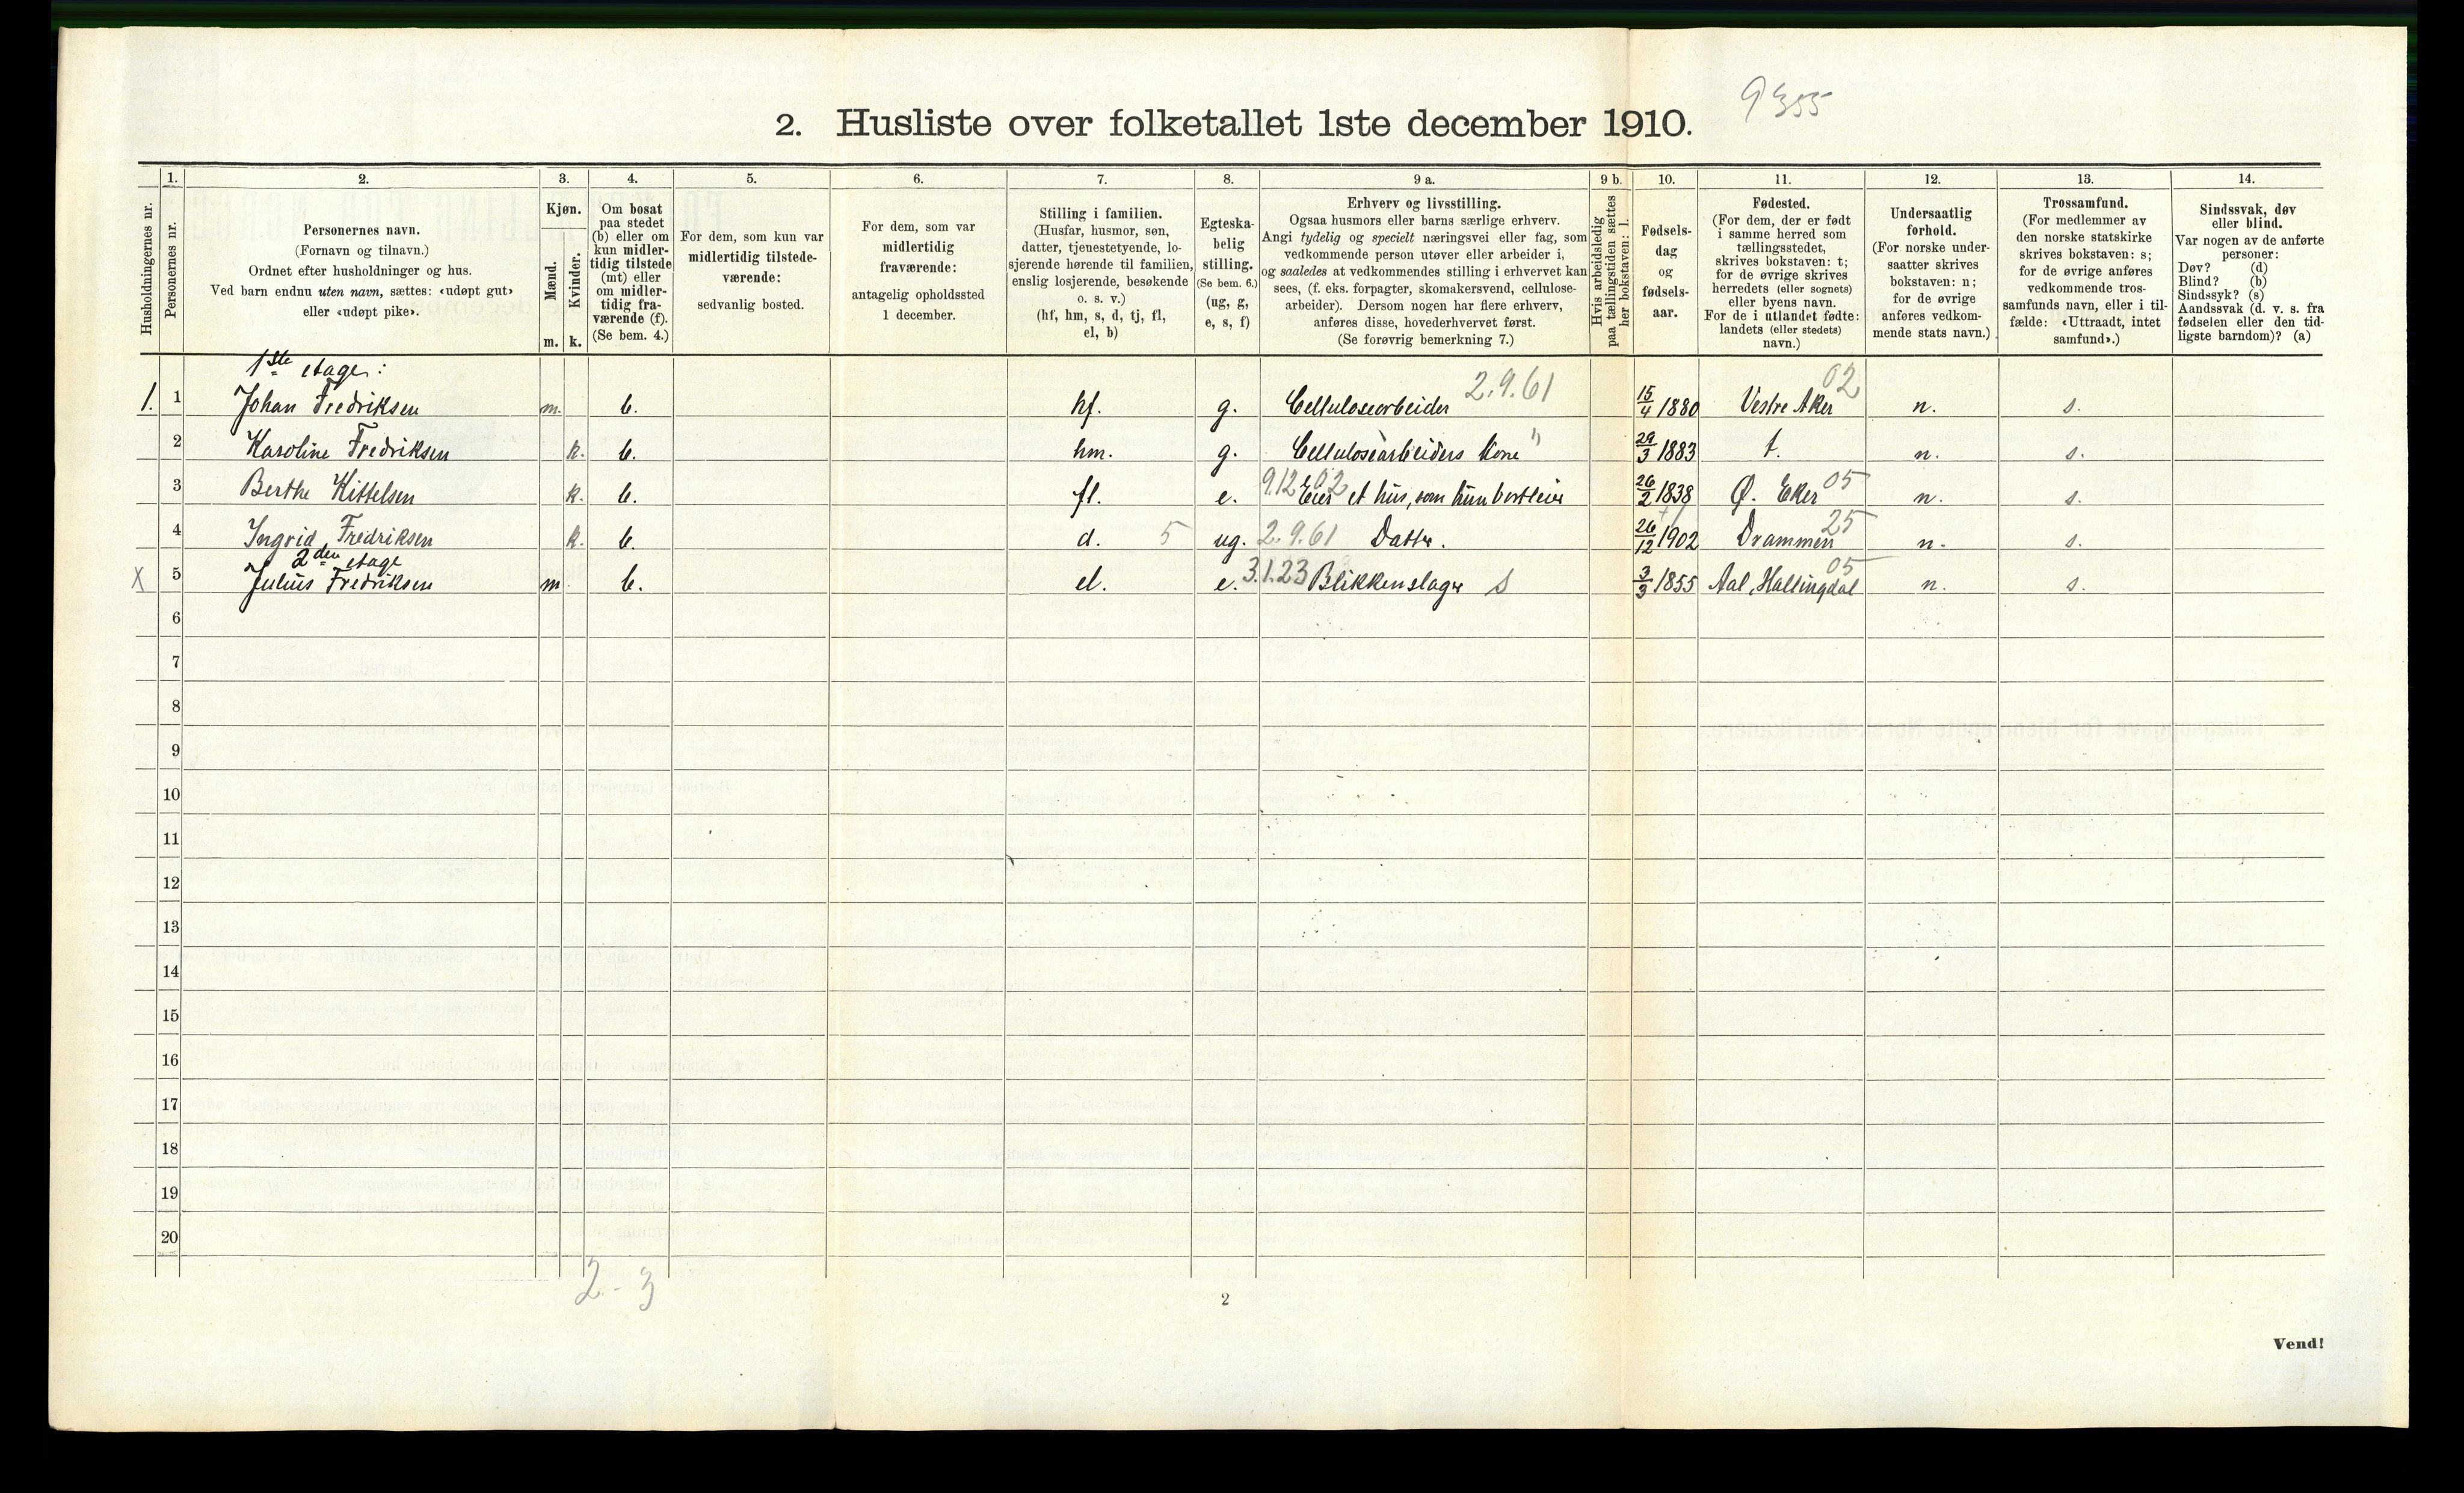 9355
2. Husliste over folketallet 1ste december 1910.
Husholdningernes nr.
1. Personernes nr.
2. Personernes navn.
(Fornavn og tilnavn.)
Ordnet efter husholdninger og hus.
Ved barn endnu uten navn, sættes: «udøpt gut»
eller «udøpt pike».
3. Kjøn.
Mænd. m.
Kvinder. k.
4. Om bosat
paa stedet
(b) eller om
kun midler-
tidig tilstede
(mt) eller
om midler-
tidig fra-
værende (f).
(Se bem. 4.)
5. For dem, som kun var
midlertidig tilstede-
værende:
sedvanlig bosted.
6. For dem, som var
midlertidig
fraværende:
antagelig opholdssted
1 december.
7. Stilling i familien.
(Husfar, husmor, søn,
datter, tjenestetyende, lo-
sjerende hørende til familien,
enslig losjerende, besøkende
o. s. v.)
(hf, hm, s, d, tj, fl,
el, b)
8. Egteska-
belig
stilling.
(Se bem. 6.)
(ug, g,
e, s, f)
9 a. Erhverv og livsstilling.
Ogsaa husmors eller barns særlige erhverv.
Angi tydelig og specielt næringsvei eller fag, som
vedkommende person utøver eller arbeider i,
og saaledes at vedkommendes stilling i erhvervet kan
sees, (f. eks. forpagter, skomakersvend, cellulose-
arbeider). Dersom nogen har flere erhverv,
anføres disse, hovederhvervet først.
(Se forøvrig bemerkning 7.)
9 b. Hvis arbeidsledig
paa tællingstiden sættes
her bokstaven: l.
10. Fødsels-
dag
og
fødsels-
aar.
11. Fødested.
(For dem, der er født
i samme herred som
tællingsstedet,
skrives bokstaven: t;
for de øvrige skrives
herredets (eller sognets)
eller byens navn.
For de i utlandet fødte:
landets (eller stedets)
navn.)
12. Undersaatlig
forhold.
(For norske under-
saatter skrives
bokstaven: n;
for de øvrige
anføres vedkom-
mende stats navn.)
13. Trossamfund.
(For medlemmer av
den norske statskirke
skrives bokstaven: s;
for de øvrige anføres
vedkommende tros-
samfunds navn, eller i til-
fælde: «Uttraadt, intet
samfund».)
14. Sindssvak, døv
eller blind.
Var nogen av de anførte
personer:
Døv? (d)
Blind? (b)
Sindssyk? (s)
Aandssvak (d. v. s. fra
fødselen eller den tid-
ligste barndom)? (a)
1ste etage:
1. 1 Johan Fredriksen m. b. hf. g. Cellulosearbeider 2.9.61 15/4 1880 Vestre Aker 02 n. s.
2 Karoline Fredriksen k. b. hm. g. Cellulosearbeiders kone " 29/3 1883 t. n. s.
3 Berthe Kittelsen k. b. fl. e. 9.12.02 Eier et hus, som hun bortleier 26/2 1838 Ø. Eker 05 n. s.
4 Ingrid Fredriksen k. b. d. 5 ug. 2.9.61 Datter. 26/12 1902 Drammen 25 n. s.
2den etage
X 5 Julius Fredriksen m. b. el. e. 3.1.23 Blikkenslager s 3/3 1855 Aal, Hallingdal 05 n. s.
6
7
8
9
10
11
12
13
14
15
16
17
18
19
20
2 - 3
2
Vend!